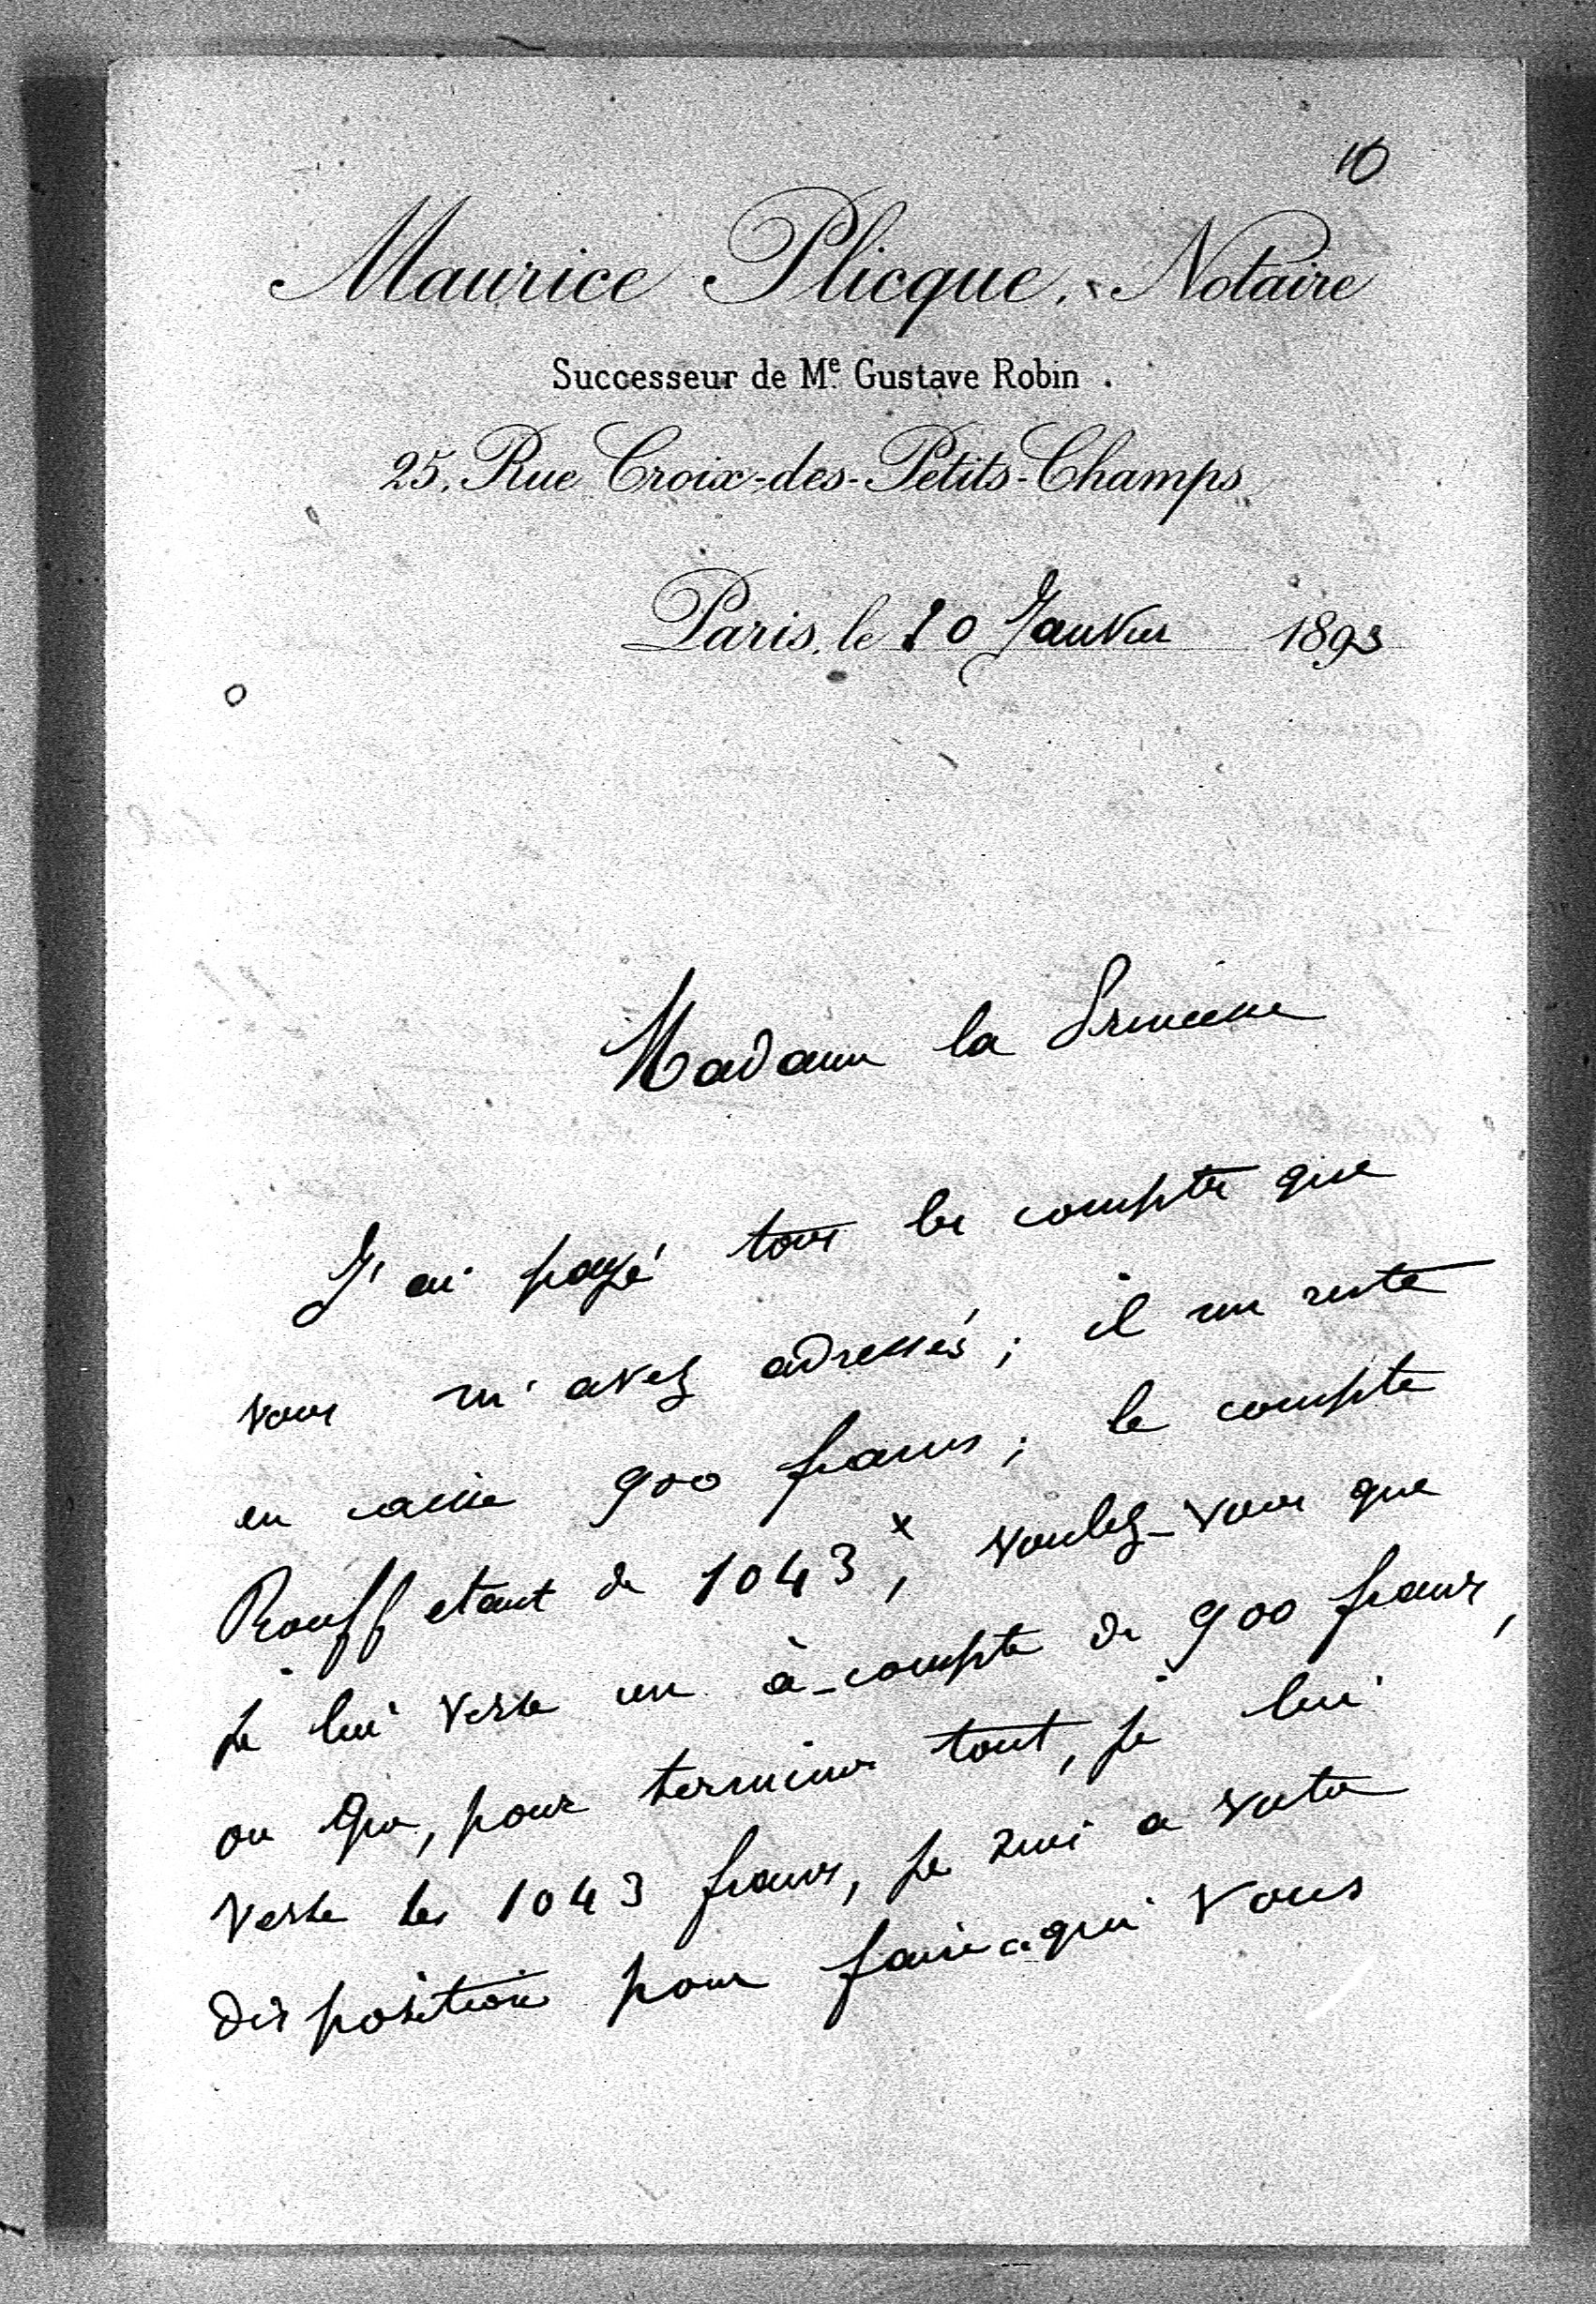 10
Maurice Plicque, Notaire
Successeur de Me Gustave Robin.
25, Rue Croix-des-Petits-Champs
Paris, le 20 Janvier 1893
Madame la Princesse
J'ai payé tous les comptes que
vous m'avez adressés; il me reste
en caisse 900 francs; le compte
Rouff etant de 1043 x, voulez-vous que
je lui verse un à-compte de 900 francs,
ou que, pour terminer tout, je lui
verse les 1043 francs, je suis a votre
disposition pour faire ce qui vous